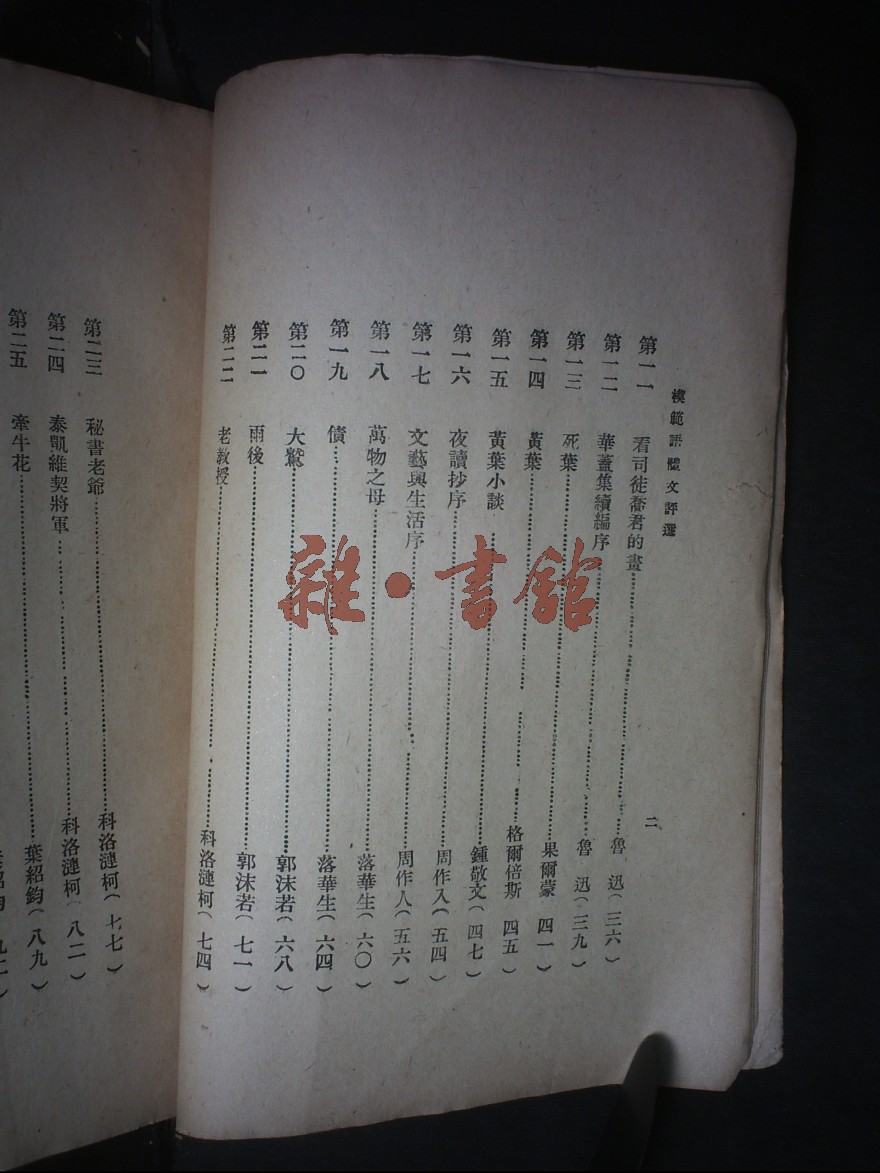 模範語體文評選
二
第一一 看司徒喬君的畫 魯迅（三六）
第一二 華蓋集續編序 魯迅（三九）
第一三 死葉 果爾蒙 四一
第一四 黃葉 格爾倍斯 四五
第一五 黃葉小談 鍾敬文（四七）
第一六 夜讀抄序 周作人（五四）
第一七 文藝與生活序 周作人（五六）
第一八 萬物之母 落華生（六〇）
第一九 債 落華生（六四）
第二〇 大鷲 郭沫若（六八）
第二一 雨後 郭沫若（七一）
第二二 老教授 科洛漣柯（七四）
第二三 秘書老爺 科洛漣柯（七七）
第二四 泰凱維契將軍 科洛漣柯（八二）
第二五 牽牛花 葉紹鈞（八九）
雜·書館